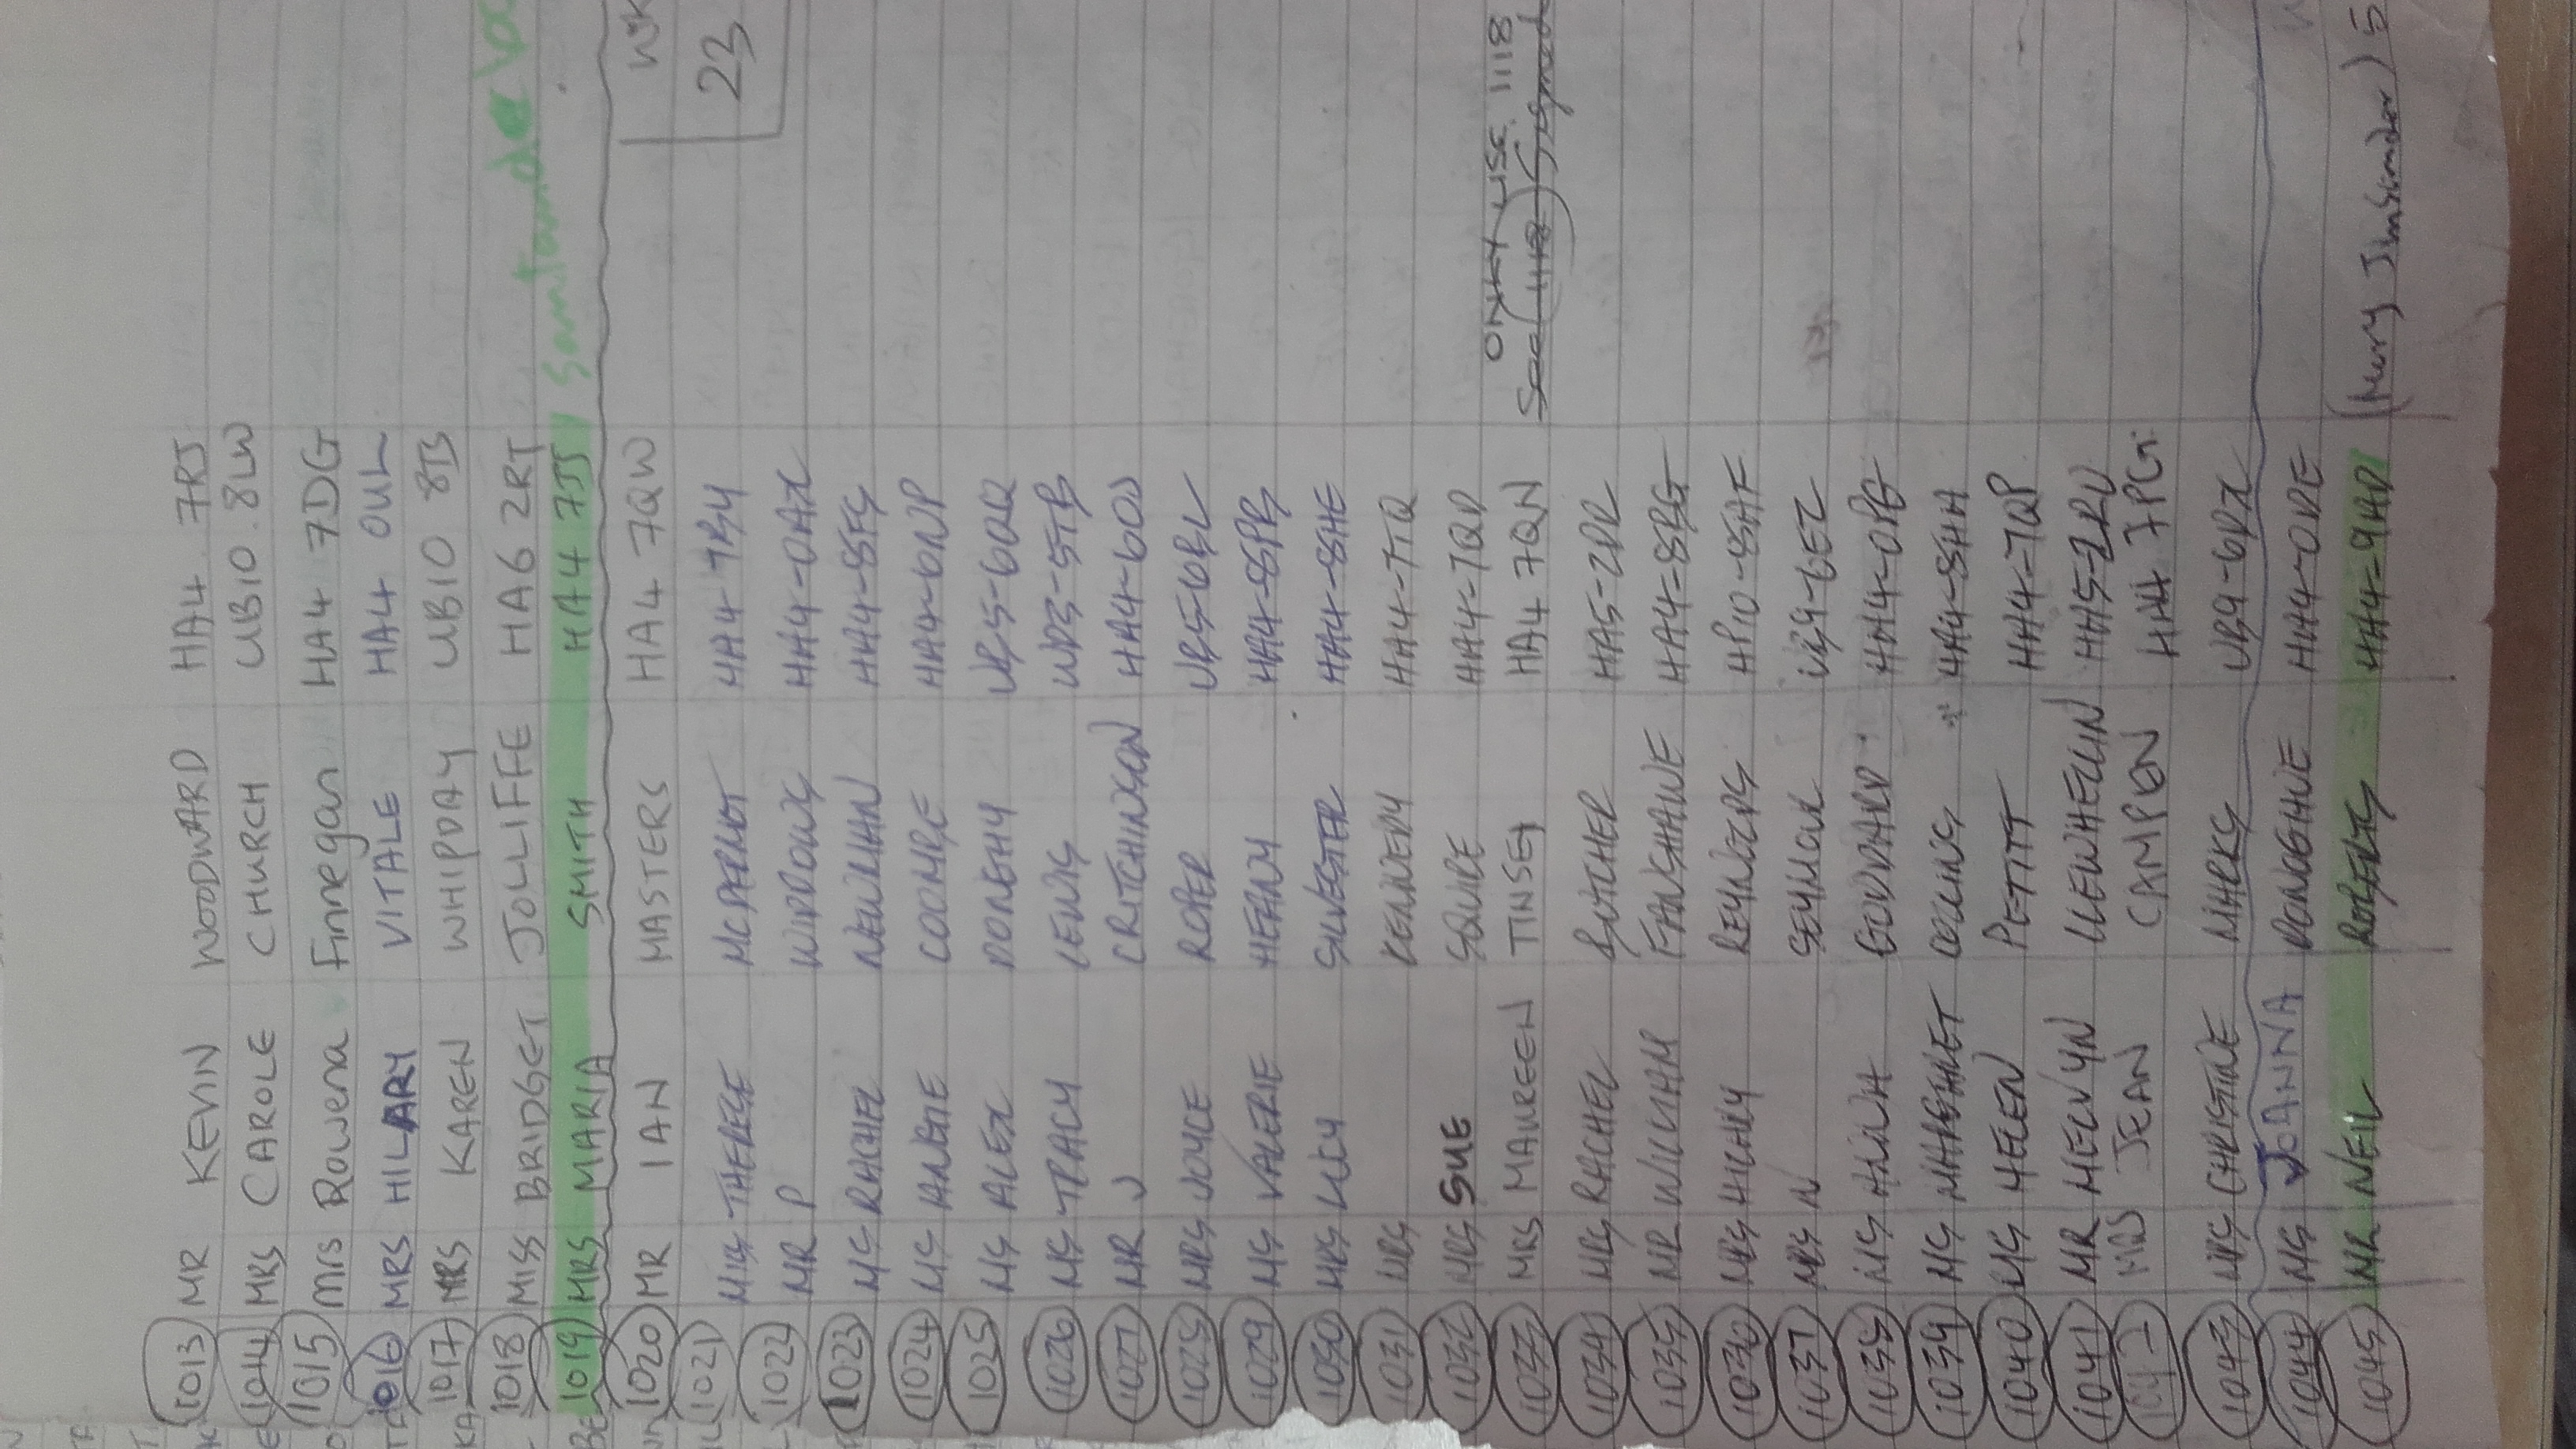 1013 MR KEVIN WOODWARD HA4 7RJ
1014 MRS CAROLE CHURCH UB10 8LW
1015 Mrs Rowena Finnegan HA4 7DG
1016 MRS HILARY VITALE HA4 0UL
1017 MRS KAREN WHIPDAY UB10 8TS
1018 MISS BRIDGET JOLLIFFE HA6 2RT
1019 MRS MARIA SMITH HA4 7JS
1020 MR IAN MASTERS HA4 7QW WK
23
1021 MISS THERESE MCDERMOT HA4-7BY
1022 MR P WIDDOWS HA4-0AX
1023 MS RACHEL NEWMAN HA4-8FS
1024 MS ANGIE COOMBE HA4-6NP
1025 MS ALEX DONEGHY UB5-6QQ
1026 MS TRACY LEWIS WD3-5TB
1027 MR J CRITCHINSON HA4-6OJ
1028 MRS JOYCE ROPER UB5-6BL
1029 MS VALERIE HEANY HA4-8PB
1030 MRS LUCY SILVESTER HA4-8HE
1031 MRS KENNEDY HA4-7TQ
1032 MRS SUE SQUIRE HA4-7QD
ONLY USE 1118
1033 MRS MAUREEN HA4 7QN See 1118 Signed
1034 MRS RACHEL BUTCHER HA5-2DR
1035 MR WILLIAM FANSHAWE HA4-8BG
1036 MRS HILARY REYNOLDS HP10-8AF
1037 MRS N SEYMOUR UB9-6EZ
1038 MS ANNA GODDARD HA4-0PG
1039 MS MARGARET COLLINS * HA4-8HA
1040 MS HELEN PETITT HA4-7QP
1041 MR MELVYN LLEWHELLIN HA5-2RU
1042 MRS JEAN CAMPEN HA4 7PG
1043 MRS CHRISTINE MARKS UB9-6DX
1044 MS JOANNA DONOGHUE HA4-0DE
1045 MR NEIL ROBERTS HA4-9AD